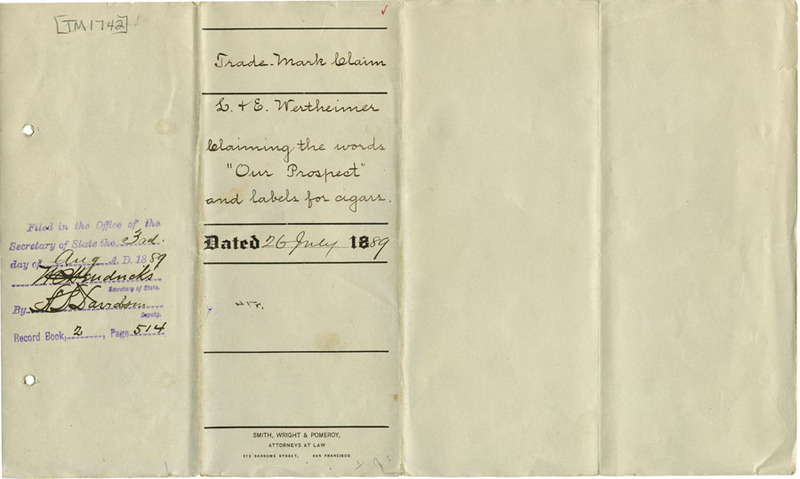 [TM1742]
Trade-Mark Claim
L. & E. Wertheimer
Claiming the words
"Our Prospect"
and labels for cigars.
Dated 26 July 1889
Filed in the Office of the
Secretary of State the 3rd.
day of Aug A.D. 1889
W C Hendricks
Secretary of State.
By Davidson
Deputy.
Record Book, 2, Page 514
SMITH, WRIGHT & POMEROY,
ATTORNEYS AT LAW
SANSOME STREET, SAN FRANCISCO.